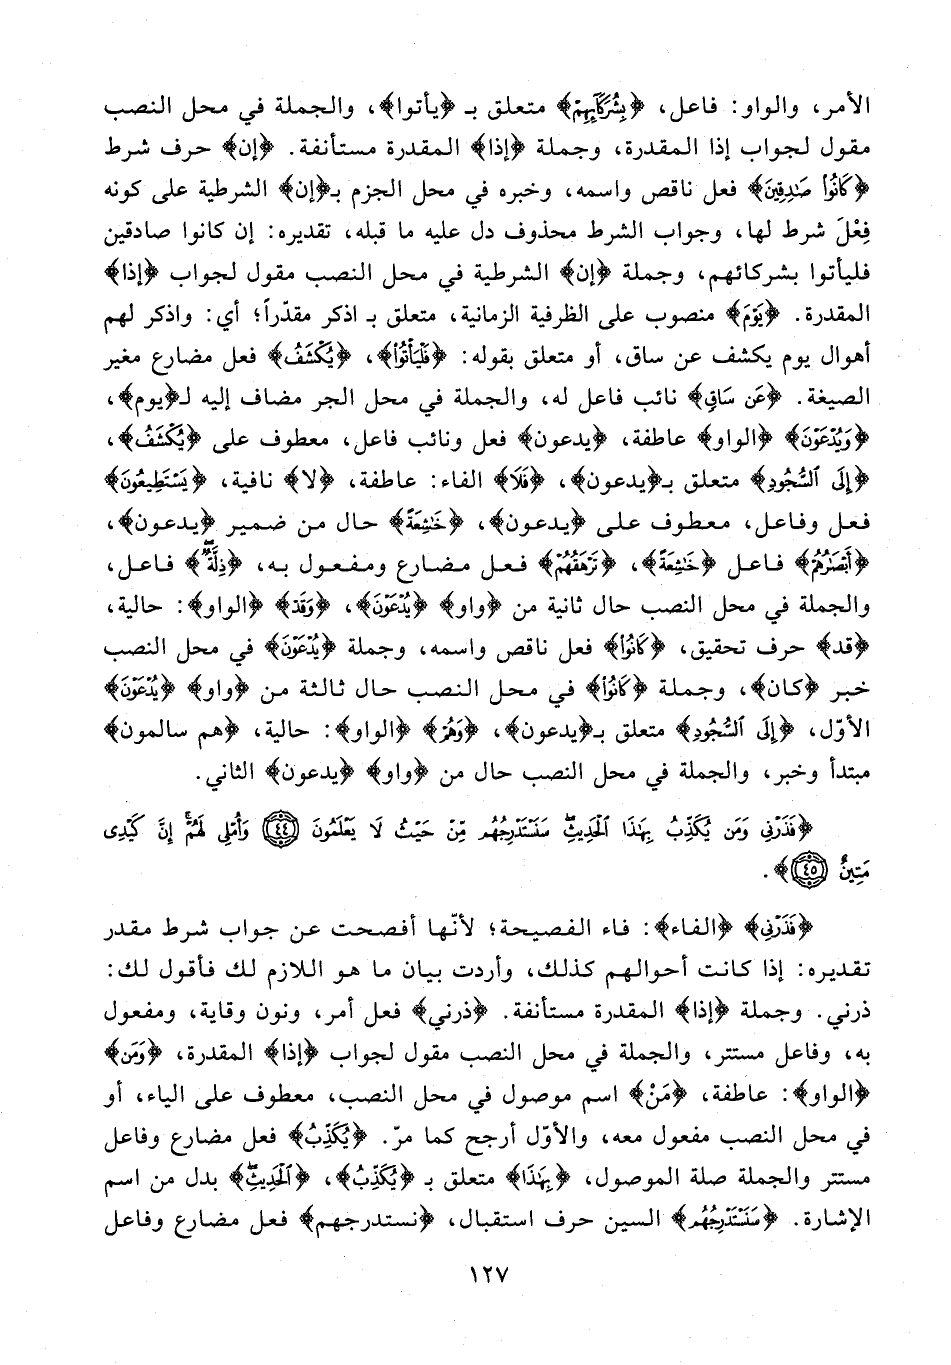 الأمر، والواو: فاعل، ﴿بِشُرَكَآئِهِمْ﴾ متعلق بـ ﴿يأتوا﴾، والجملة في محل النصب
مقول لجواب إذا المقدرة، وجملة ﴿إذا﴾ المقدرة مستأنفة. ﴿إن﴾ حرف شرط
﴿كَانُوا۟ صَـٰدِقِينَ﴾ فعل ناقص واسمه، وخبره في محل الجزم بـ﴿إن﴾ الشرطية على كونه
فِعْلَ شرط لها، وجواب الشرط محذوف دل عليه ما قبله، تقديره: إن كانوا صادقين
فليأتوا بشركائهم، وجملة ﴿إن﴾ الشرطية في محل النصب مقول لجواب ﴿إذا﴾
المقدرة. ﴿يَوْمَ﴾ منصوب على الظرفية الزمانية، متعلق بـ اذكر مقدّراً؛ أي: واذكر لهم
أهوال يوم يكشف عن ساق، أو متعلق بقوله: ﴿فَلْيَأْتُوا۟﴾، ﴿يُكْشَفُ﴾ فعل مضارع مغير
الصيغة. ﴿عَن سَاقٍ﴾ نائب فاعل له، والجملة في محل الجر مضاف إليه لـ﴿يوم﴾،
﴿وَيُدْعَوْنَ﴾ ﴿الواو﴾ عاطفة، ﴿يدعون﴾ فعل ونائب فاعل، معطوف على ﴿يُكْشَفُ﴾،
﴿إِلَى ٱلسُّجُودِ﴾ متعلق بـ﴿يدعون﴾، ﴿فَلَا﴾ الفاء: عاطفة، ﴿لا﴾ نافية، ﴿يَسْتَطِيعُونَ﴾
فعل وفاعل، معطوف على ﴿يدعون﴾، ﴿خَـٰشِعَةً﴾ حال من ضمير ﴿يدعون﴾،
﴿أَبْصَـٰرُهُمْ﴾ فاعل ﴿خَـٰشِعَةً﴾، ﴿تَرْهَقُهُمْ﴾ فعل مضارع ومفعول به، ﴿ذِلَّةٌ ۖ﴾ فاعل،
والجملة في محل النصب حال ثانية من ﴿واو﴾ ﴿يُدْعَوْنَ﴾، ﴿وَقَدْ﴾ ﴿الواو﴾: حالية،
﴿قد﴾ حرف تحقيق، ﴿كَانُوا۟﴾ فعل ناقص واسمه، وجملة ﴿يُدْعَوْنَ﴾ في محل النصب
خبر ﴿كان﴾، وجملة ﴿كَانُوا۟﴾ في محل النصب حال ثالثة من ﴿واو﴾ ﴿يُدْعَوْنَ﴾
الأوّل، ﴿إِلَى ٱلسُّجُودِ﴾ متعلق بـ﴿يدعون﴾، ﴿وَهُمْ﴾ ﴿الواو﴾: حالية، ﴿هم سالمون﴾
مبتدأ وخبر، والجملة في محل النصب حال من ﴿واو﴾ ﴿يدعون﴾ الثاني.
﴿فَذَرْنِى وَمَن يُكَذِّبُ بِهَـٰذَا ٱلْحَدِيثِ ۖ سَنَسْتَدْرِجُهُم مِّنْ حَيْثُ لَا يَعْلَمُونَ ٤٤ وَأُمْلِى لَهُمْ ۚ إِنَّ كَيْدِى
مَتِينٌ ٤٥﴾.
﴿فَذَرْنِى﴾ ﴿الفاء﴾: فاء الفصيحة؛ لأنّها أفصحت عن جواب شرط مقدر
تقديره: إذا كانت أحوالهم كذلك، وأردت بيان ما هو اللازم لك فأقول لك:
ذرني. وجملة ﴿إذا﴾ المقدرة مستأنفة. ﴿ذرني﴾ فعل أمر، ونون وقاية، ومفعول
به، وفاعل مستتر، والجملة في محل النصب مقول لجواب ﴿إذا﴾ المقدرة، ﴿وَمَن﴾
﴿الواو﴾: عاطفة، ﴿مَنْ﴾ اسم موصول في محل النصب، معطوف على الياء، أو
في محل النصب مفعول معه، والأوّل أرجح كما مرّ. ﴿يُكَذِّبُ﴾ فعل مضارع وفاعل
مستتر والجملة صلة الموصول، ﴿بِهَـٰذَا﴾ متعلق بـ ﴿يُكَذِّبُ﴾، ﴿ٱلْحَدِيثِ ۖ﴾ بدل من اسم
الإشارة. ﴿سَنَسْتَدْرِجُهُم﴾ السين حرف استقبال، ﴿نستدرجهم﴾ فعل مضارع وفاعل
١٢٧